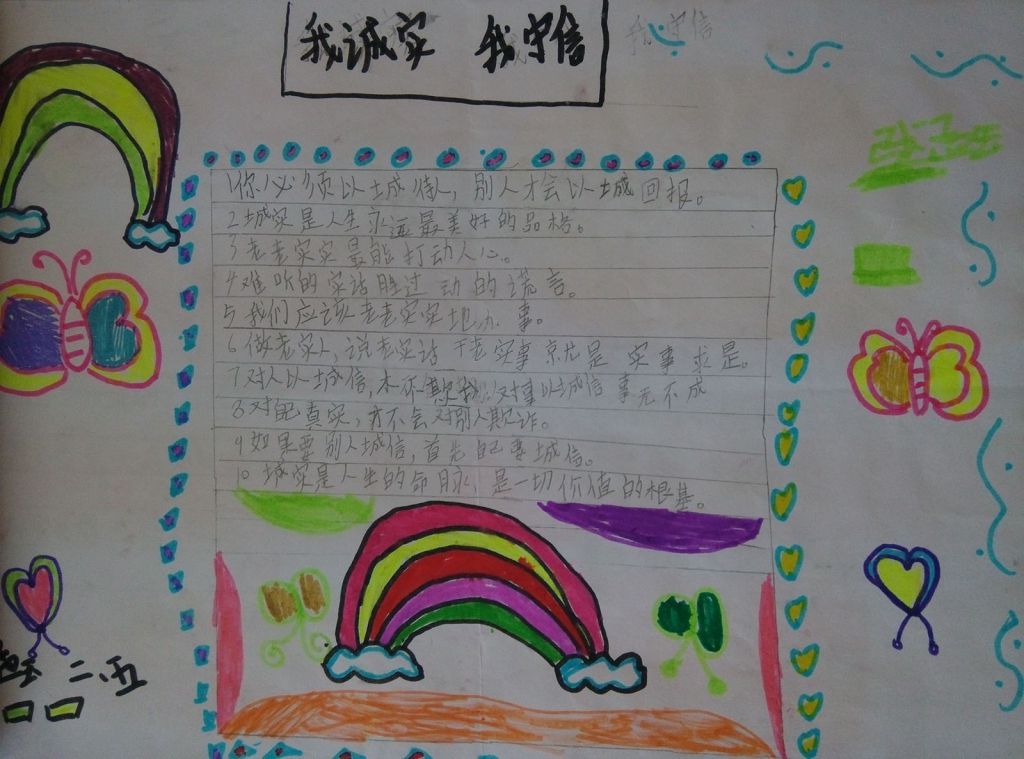 我诚实 我守信
我守信
1你必须以城待人，别人才会以城回报。
2城实是人生永远最美好的品格。
3老老实实最能打动人心。
4难听的实话胜过动的谎言。
5我们应该老老实实地办事。
6做老实人，说老实话干老实事就是实事求是。
7对人以城信，木不欺我；对事以诚信事无不成
8对自己真实，才不会对别人欺诈。
9如果要别人城信，首先自己要城信。
10城实是人生的命脉，是一切价值的根基。
二、五